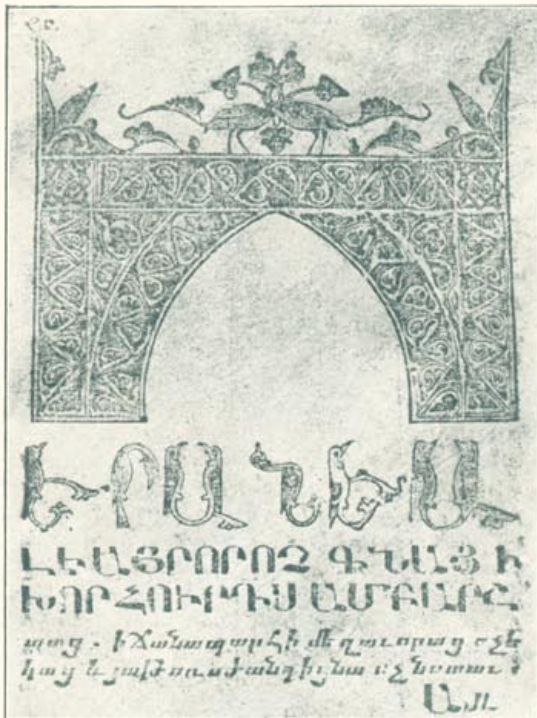 ԵՐԱՆԵԱ
ԼԷԱՅՐՈՐՈՉ ԳՆԱՑ Ի
ԽՈՐՀՈՒՐԴՍ ԱՄԲԱՐՇ
տաց . ի ճանապարհի մեղաւորաց ոչ ե
կաց և յաթոռս ժանդից նա ոչ նստաւ ։
Այլ